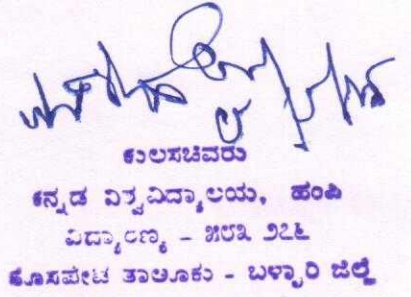 ಕುಲಸಚಿವರು
ಕನ್ನಡ ವಿಶ್ವವಿದ್ಯಾಲಯ, ಹಂಪಿ
ವಿದ್ಯಾರಣ್ಯ - ೫೮೩ ೨೭೬
ಹೊಸಪೇಟ ತಾಲೂಕು - ಬಳ್ಳಾರಿ ಜಿಲ್ಲೆ